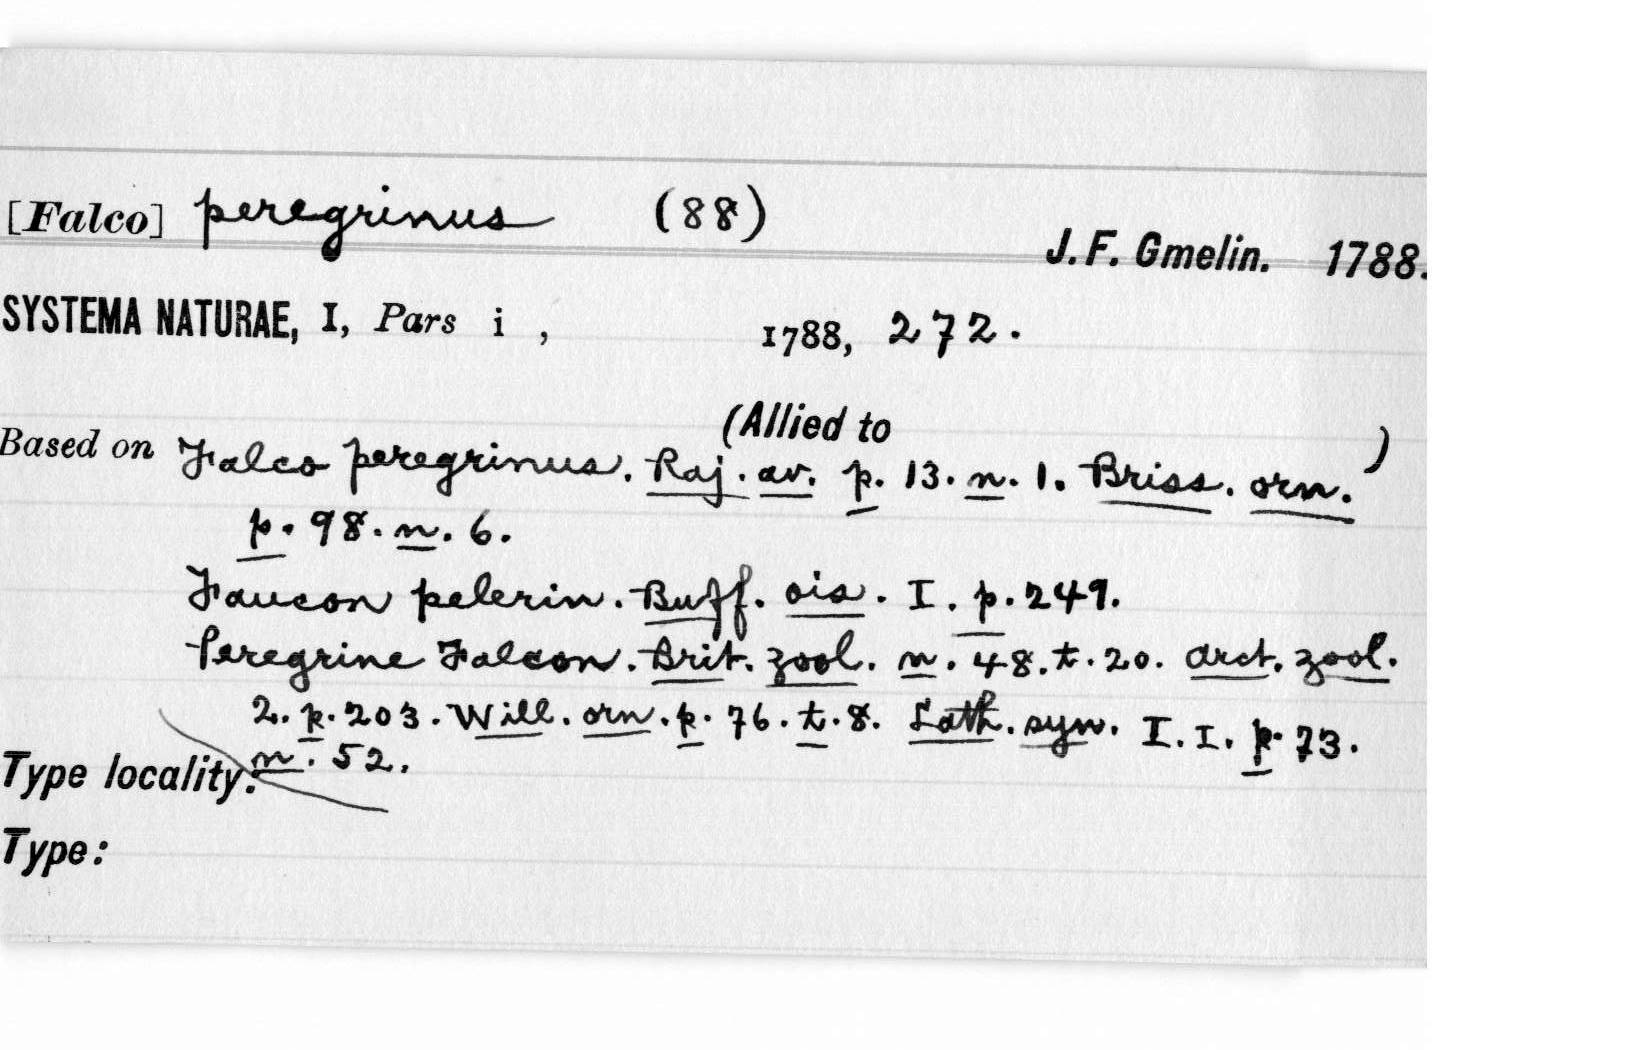 [Falco] peregrinus (88)
J. F. Gmelin. 1788.
SYSTEMA NATURAE, I, Pars i , 1788, 272.
(Allied to )
Based on Falco peregrinus. Raj. av. p. 13. n. 1. Briss. orn.
p. 98. n. 6.
Faucon pelerin. Buff. ois. I. p. 249.
Peregrine Falcon. Brit. zool. n. 48. t. 20. arct. zool.
2. p. 203. Will. orn. p. 76. t. 8. Lath. syn. I. I. p. 73.
n. 52.
Type locality:
Type: